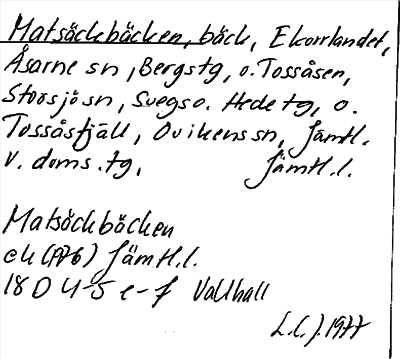 Matsäckbäcken, bäck, Ekorrlandet,
Åsarne sn, Bergs tg, o. Tossåsen,
Storsjö sn, Svegs o. Hede tg, o.
Tossåsfjäll, Ovikens sn, Jämtl.
v. doms. tg, Jämtl. l.
Matsäckbäcken
ek (1976) Jämtl. l.
18 D 4-5 e-f Vallhall
L.C.J. 1977